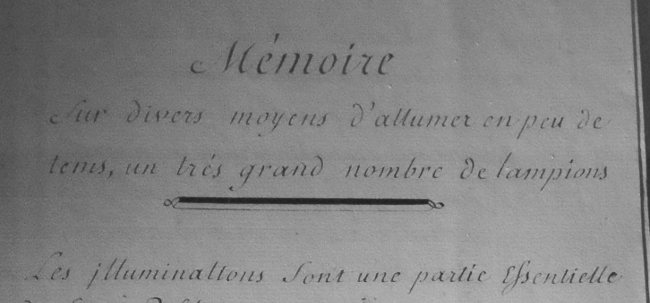 Mémoire
Sur divers moyens d'allumer en peu de
tems, un trés grand nombre de lampions
Les jlluminations Sont une partie Essentielle